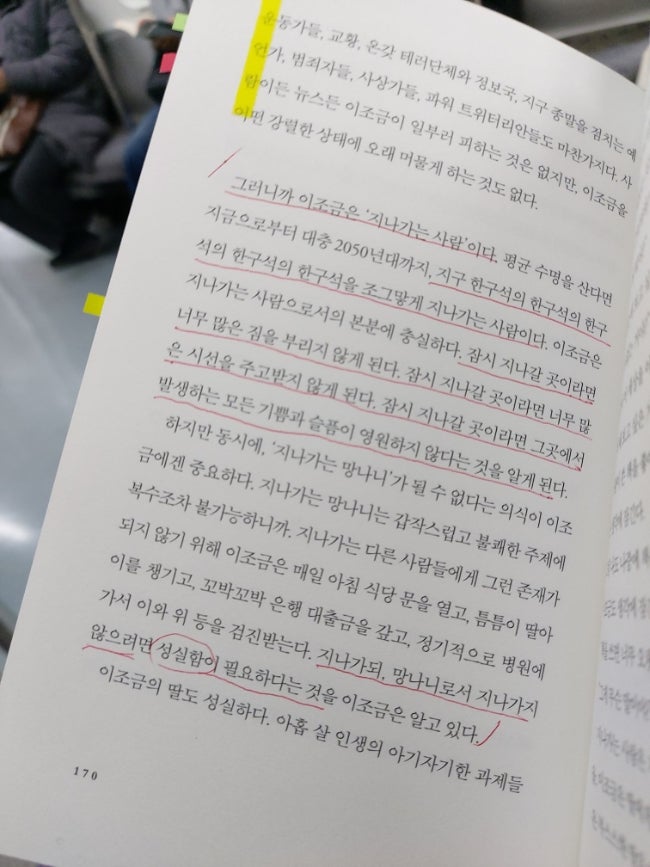 운동가들, 교황, 온갖 테러단체와 정보국, 지구 종말을 점치는 예
언가, 범죄자들, 사상가들, 파워 트위터리안들도 마찬가지다. 사
람이든 뉴스든 이조금이 일부러 피하는 것은 없지만, 이조금을
어떤 강렬한 상태에 오래 머물게 하는 것도 없다.
그러니까 이조금은 ‘지나가는 사람’이다. 평균 수명을 산다면
지금으로부터 대충 2050년대까지, 지구 한구석의 한구석의 한구
석의 한구석의 한구석을 조그맣게 지나가는 사람이다. 이조금은
지나가는 사람으로서의 본분에 충실하다. 잠시 지나갈 곳이라면
너무 많은 짐을 부리지 않게 된다. 잠시 지나갈 곳이라면 너무 많
은 시선을 주고받지 않게 된다. 잠시 지나갈 곳이라면 그곳에서
발생하는 모든 기쁨과 슬픔이 영원하지 않다는 것을 알게 된다.
하지만 동시에, ‘지나가는 망나니’가 될 수 없다는 의식이 이조
금에겐 중요하다. 지나가는 망나니는 갑작스럽고 불쾌한 주제에
복수조차 불가능하니까. 지나가는 다른 사람들에게 그런 존재가
되지 않기 위해 이조금은 매일 아침 식당 문을 열고, 틈틈이 딸아
이를 챙기고, 꼬박꼬박 은행 대출금을 갚고, 정기적으로 병원에
가서 이와 위 등을 검진받는다. 지나가되, 망나니로서 지나가지
않으려면 성실함이 필요하다는 것을 이조금은 알고 있다.
이조금의 딸도 성실하다. 아홉 살 인생의 아기자기한 과제들
170